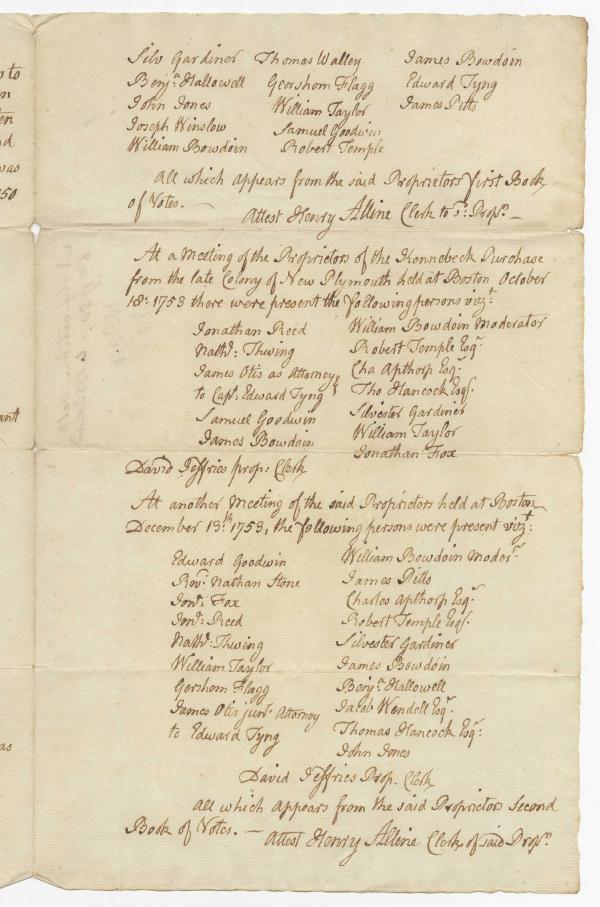 Silv Gardiner Thomas Walley James Bowdoin
Benjª Hallowell Gershom Flagg Edward Tyng
John Jones William Taylor James Pitts
Joseph Winslow Samuel Goodwin
William Bowdoin Robert Temple
All which appears from the said Proprietors first Book
of Votes. —
Attest Henry Alline Clerk to sᵈ: Propʳˢ —
At a Meeting of the Proprietors of the Kennebeck Purchase
from the late Colony of New Plymouth held at Boston October
18: 1753 there were present the following persons vizᵗ:
Jonathan Reed William Bowdoin Moderator
Nathˡ: Thwing Robert Temple Esqʳ
James Otis as Attorney Cha Apthorp Esqʳ
to Capᵗ: Edward Tyng Tho Hancock Esqʳ.
Samuel Goodwin Silvester Gardiner
James Bowdoin William Taylor
Jonathan Fox
David Jeffries prop: Clerk
At another Meeting of the said Proprietors held at Boston
December 13ᵗʰ: 1753, the following persons were present vizᵗ:
Edward Goodwin William Bowdoin Moderʳ
Revᵈ: Nathan Stone James Pitts
Jonᵃ: Fox Charles Apthorp Esqʳ
Jonᵃ: Reed Robert Temple Esqʳ.
Nathˡ: Thwing Silvester Gardiner
William Taylor James Bowdoin
Gershom Flagg Benjª Hallowell
James Otis junʳ Attorney Jacob Wendell Esqʳ.
to Edward Tyng Thomas Hancock Esqʳ:
John Jones
David Jeffries Prop. Clerk
All which appears from the said Proprietors Second
Book of Votes. —
Attest Henry Alline Clerk of said Propʳˢ
to
was
50
as